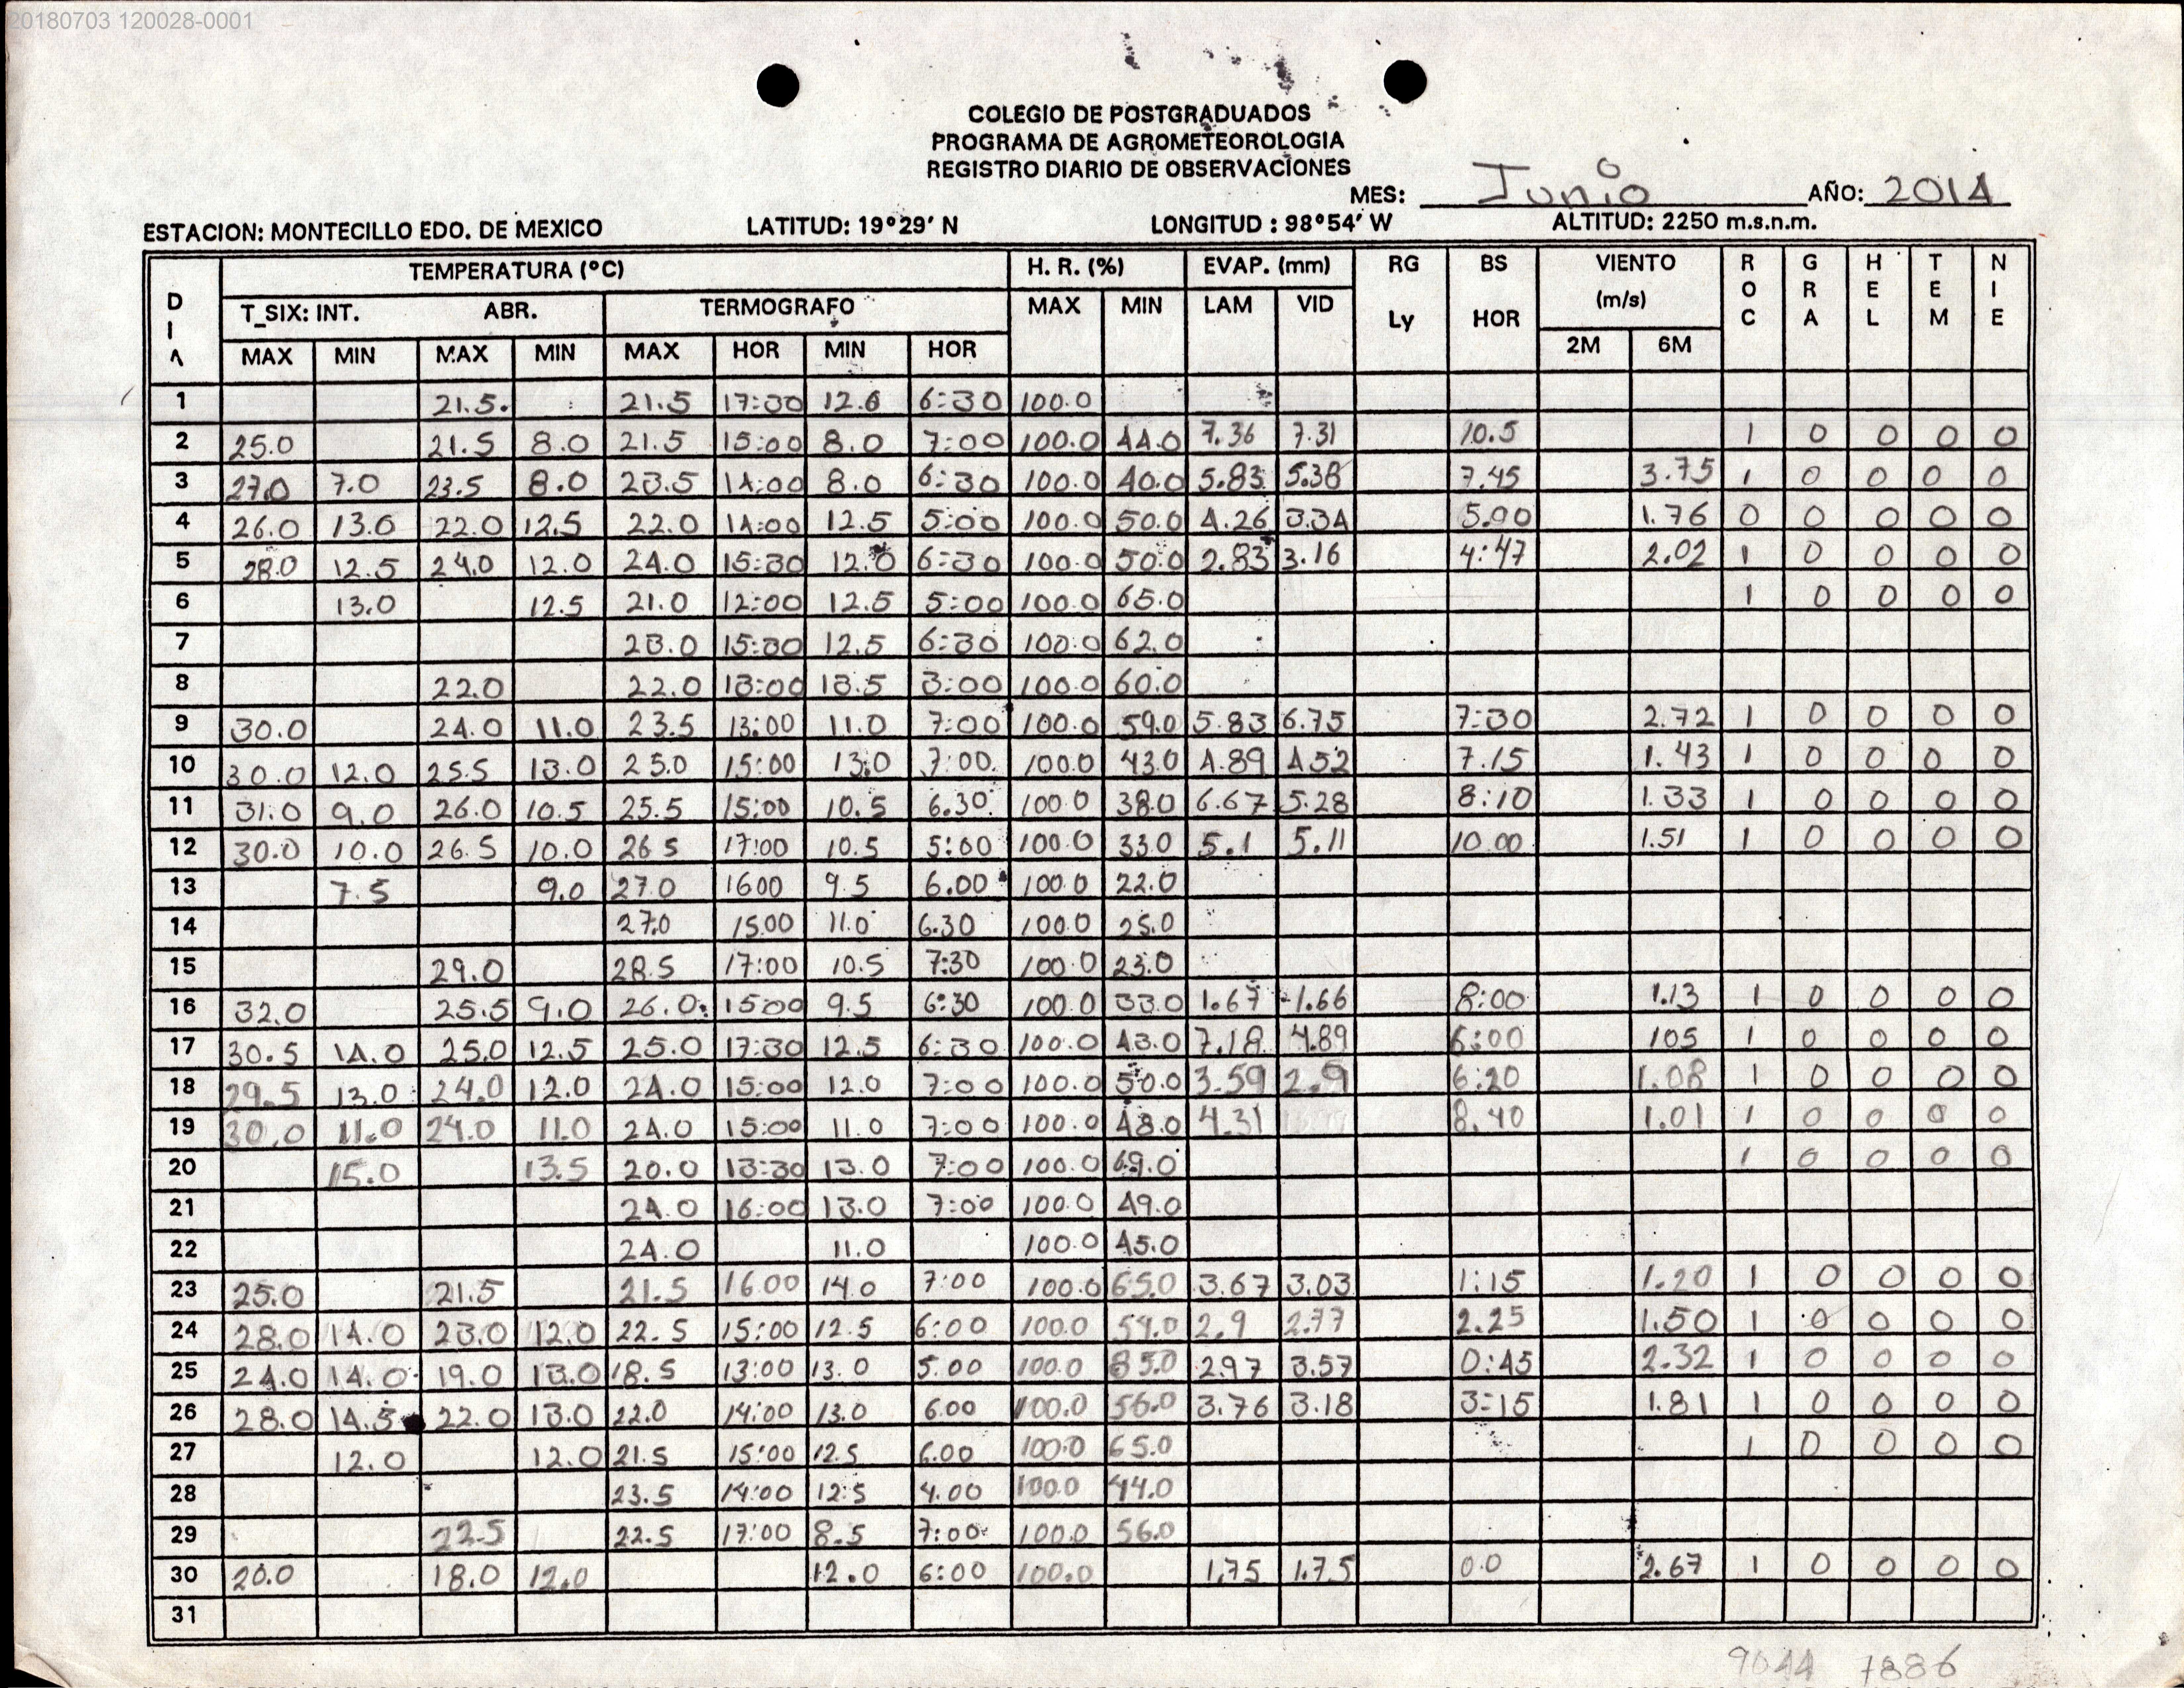 20180703 120028-0001
COLEGIO DE POSTGRADUADOS
PROGRAMA DE AGROMETEOROLOGIA
REGISTRO DIARIO DE OBSERVACIONES
MES: Junio AÑO: 2014
ESTACION: MONTECILLO EDO. DE MEXICO LATITUD: 19°29' N LONGITUD : 98°54' W ALTITUD: 2250 m.s.n.m.
DIA TEMPERATURA (°C) H. R. (%) EVAP. (mm) RG BS VIENTO ROC GRA HEL TEM NIE
T_SIX: INT. ABR. TERMOGRAFO MAX MIN LAM VID Ly HOR (m/s)
MAX MIN MAX MIN MAX HOR MIN HOR 2M 6M
1 21.5. 21.5 17:30 12.6 6:30 100.0
2 25.0 21.5 8.0 21.5 15:00 8.0 7:00 100.0 44.0 7.36 7.31 10.5 1 0 0 0 0
3 27.0 7.0 23.5 8.0 23.5 14:00 8.0 6:30 100.0 40.0 5.83 5.38 7.45 3.75 1 0 0 0 0
4 26.0 13.0 22.0 12.5 22.0 14:00 12.5 5:00 100.0 50.0 4.26 3.34 5.90 1.76 0 0 0 0 0
5 28.0 12.5 24.0 12.0 24.0 15:30 12.0 6:30 100.0 50.0 2.83 3.16 4:47 2.02 1 0 0 0 0
6 13.0 12.5 21.0 12:00 12.5 5:00 100.0 65.0 1 0 0 0 0
7 23.0 15:30 12.5 6:30 100.0 62.0
8 22.0 22.0 13:00 13.5 3:00 100.0 60.0
9 30.0 24.0 11.0 23.5 13:00 11.0 7:00 100.0 59.0 5.83 6.75 7:30 2.72 1 0 0 0 0
10 30.0 12.0 25.5 13.0 25.0 15:00 13.0 7:00. 100.0 43.0 4.89 4.52 7.15 1.43 1 0 0 0 0
11 31.0 9.0 26.0 10.5 25.5 15:00 10.5 6.30 100.0 38.0 6.67 5.28 8:10 1.33 1 0 0 0 0
12 30.0 10.0 26.5 10.0 26 5 17:00 10.5 5:00 100.0 33.0 5.1 5.11 10.00 1.51 1 0 0 0 0
13 7.5 9.0 27.0 1600 9.5 6.00 100.0 22.0
14 27.0 15.00 11.0 6.30 100.0 25.0
15 29.0 28.5 17:00 10.5 7:30 100.0 23.0
16 32.0 25.5 9.0 26.0 15:00 9.5 6:30 100.0 33.0 1.67 -1.66 8:00 1.13 1 0 0 0 0
17 30.5 14.0 25.0 12.5 25.0 17:30 12.5 6:30 100.0 43.0 7.18 4.89 6:00 105 1 0 0 0 0
18 29.5 13.0 24.0 12.0 24.0 15:00 12.0 7:00 100.0 50.0 3.59 2.9 6:20 1.08 1 0 0 0 0
19 30.0 11.0 24.0 11.0 24.0 15:00 11.0 7:00 100.0 48.0 4.31 8.40 1.01 1 0 0 0 0
20 15.0 13.5 20.0 13:30 13.0 7:00 100.0 69.0 1 0 0 0 0
21 24.0 16:00 13.0 7:00 100.0 49.0
22 24.0 11.0 100.0 45.0
23 25.0 21.5 21.5 16.00 14.0 7:00 100.0 65.0 3.67 3.03 1:15 1.20 1 0 0 0 0
24 28.0 14.0 23.0 12.0 22.5 15:00 12.5 6:00 100.0 54.0 2.9 2.77 2.25 1.50 1 0 0 0 0
25 24.0 14.0 19.0 13.0 18.5 13:00 13.0 5.00 100.0 85.0 2.97 3.57 0:45 2.32 1 0 0 0 0
26 28.0 14.5 22.0 13.0 22.0 14:00 13.0 6.00 100.0 56.0 3.76 3.18 3:15 1.81 1 0 0 0 0
27 12.0 12.0 21.5 15:00 12.5 6.00 100.0 65.0 1 0 0 0 0
28 23.5 14:00 12.5 4.00 100.0 44.0
29 22.5 22.5 17:00 8.5 7:00 100.0 56.0
30 20.0 18.0 12.0 12.0 6:00 100.0 1.75 1.75 0.0 2.67 1 0 0 0 0
31
9044 7886